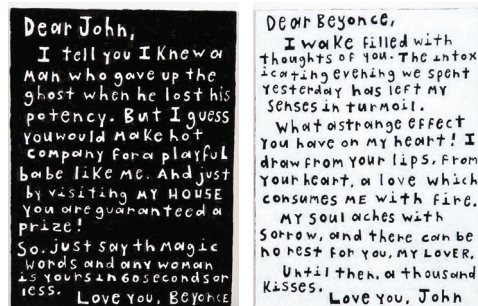 Dear John,
I tell you I Knew a
Man who gave up the
ghost when he lost his
potency. But I guess
youwould Make hot
company for a playful
babe like Me. And just
by visiting MY HOUSE
You are guaranteed a
prize!
So, just say th Magic
words and any woman
is yours in 60 seconds or
less.
Love you, Beyonce
Dear Beyonce,
I wake filled with
thoughts of you. The intox
icating evening we spent
yesterday has left MY
senses in turmoil.
What astrange effect
You have on my heart! I
draw from your lips, From
Your heart, a love which
consumes ME with fire.
MY soul aches with
Sorrow, and there can be
no rest for you, MY LOVER.
Until then, a thousand
Kisses.
Love you, John